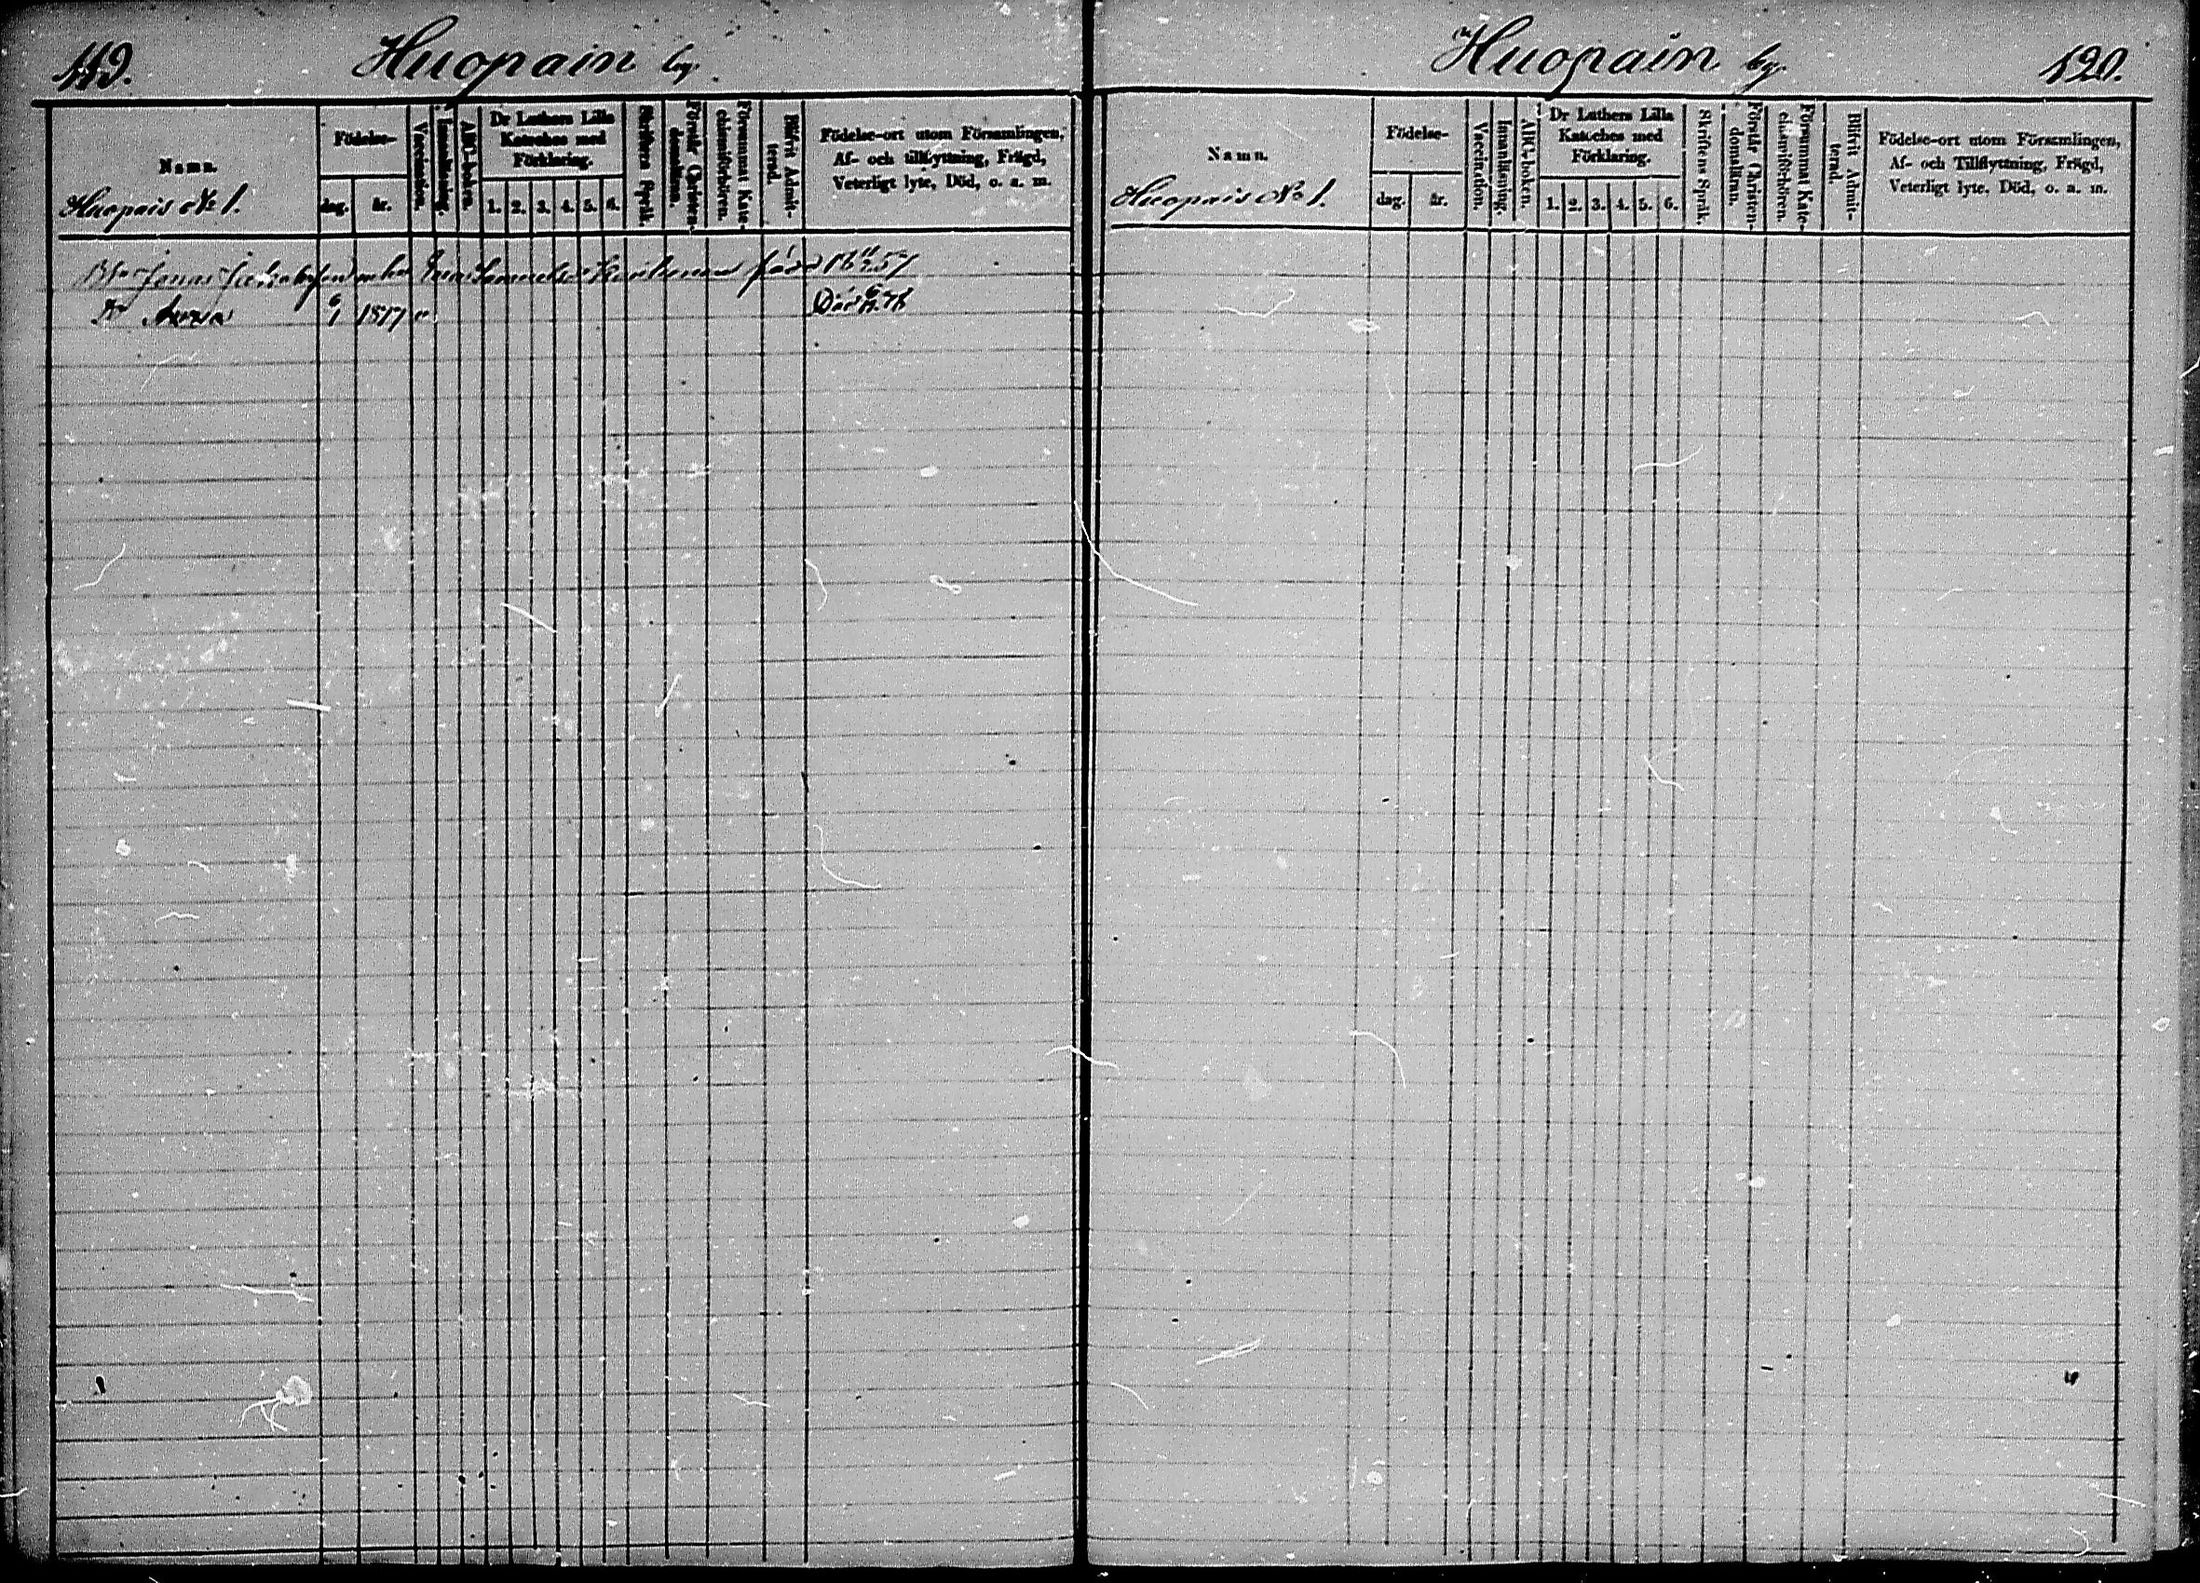 119.
Huopain by.
Namn.
Födelse-
dag.
år.
Vaccination.
Innanläsning.
ABC-boken.
Dr Luthers Lilla
Kateches med
Förklaring.
1. 2. 3. 4. 5. 6.
Skriftens Språk.
Förstår Christen-
domsläran.
Försummat Kate-
chismiförhören.
Blifvit Admit-
terad.
Födelse-ort utom Församlingen,
Af- och tillflyttning, Frägd,
Veterligt lyte, Död, o. a. m.
Huopais No 1.
Jonas
född
57
Dr Anna
1817
Död
Huopain by.
120.
Namn.
Födelse-
dag.
år.
Vaccination.
Innanläsning.
ABC-boken.
Dr Luthers Lilla
Kateches med
Förklaring.
1. 2. 3. 4. 5. 6.
Skriftens Språk.
Förstår Christen-
domsläran.
Försummat Kate-
chismiförhören.
Blifvit Admit-
terad.
Födelse-ort utom Församlingen,
Af- och Tillflyttning, Frägd,
Veterligt lyte. Död, o. a. m.
Huopais No 1.